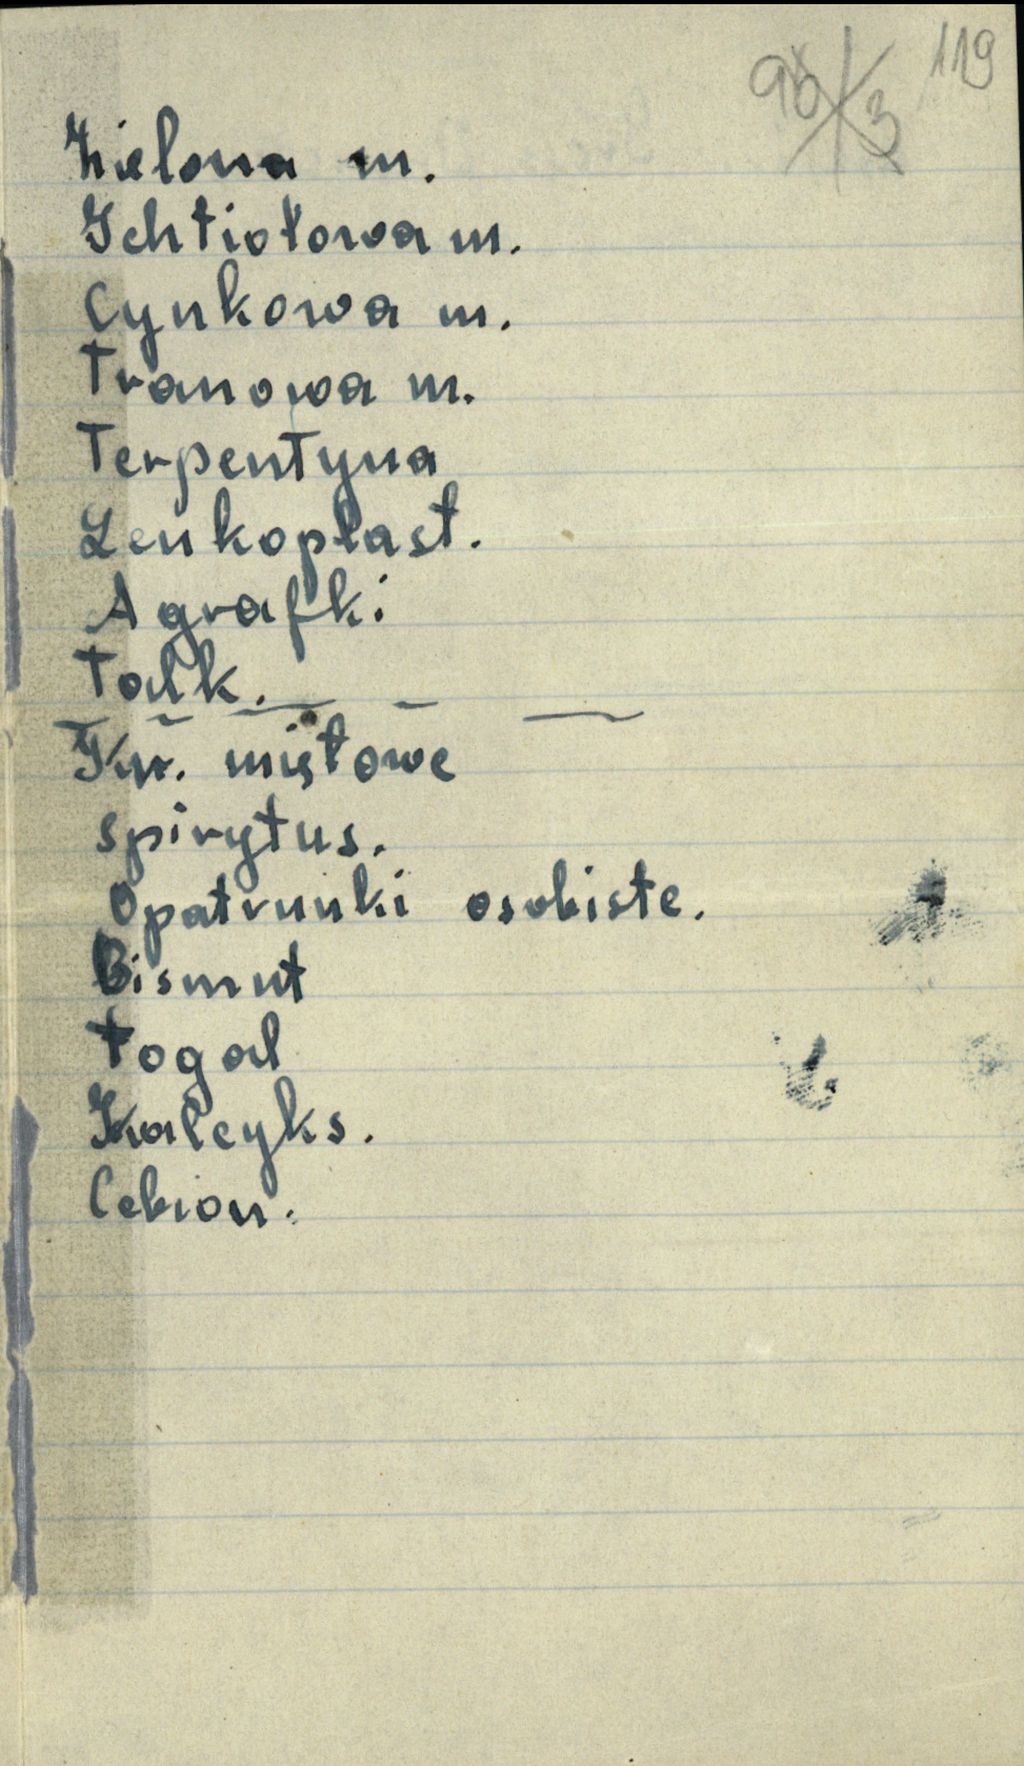 119
96/3
Zielona m.
Ichtiolowa m.
Cynkowa m.
Tranowa m.
Terpentyna
Leukoplast.
Agrafki
Talk.
Kr. miętowe
spirytus.
Opatrunki osobiste.
Bismut
Togal
Kalcyks.
Cebion.